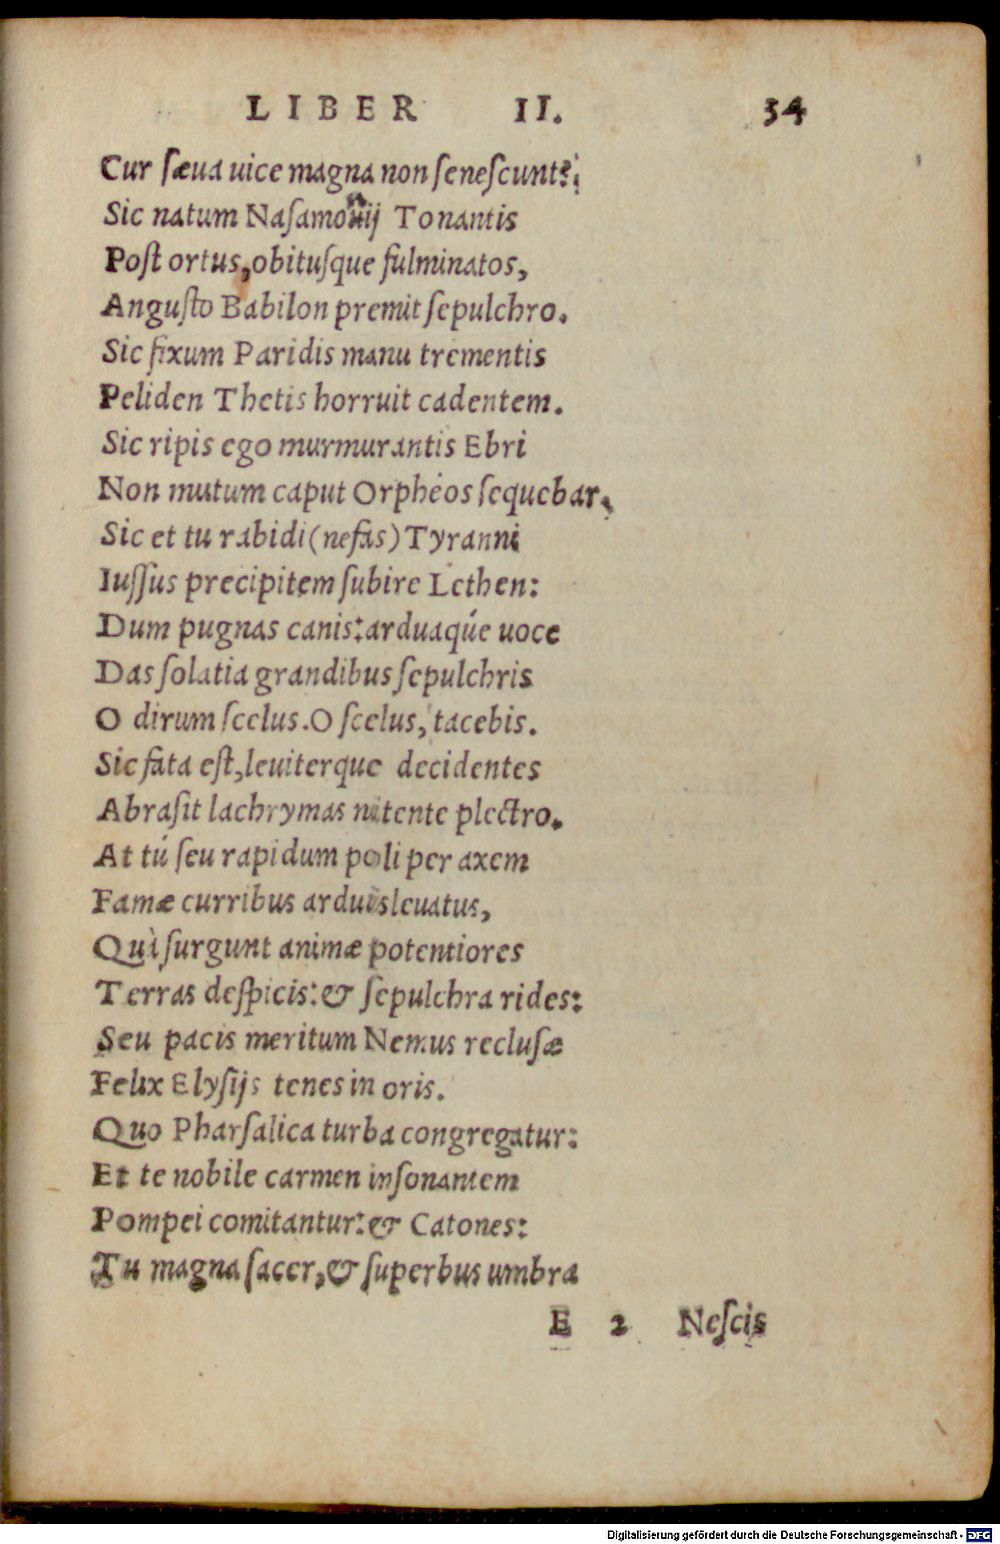 LIBER II. 34
Cur sæua uice magna non senescunt?
Sic natum Nasamonij Tonantis
Post ortus, obitusque fulminatos,
Angusto Babilon premit sepulchro.
Sic fixum Paridis manu trementis
Peliden Thetis horruit cadentem.
Sic ripis ego murmurantis Ebri
Non mutum caput Orpheos sequebar.
Sic et tu rabidi (nefas) Tyranni
Iussus precipitem subire Lethen:
Dum pugnas canis: arduaqúe uoce
Das solatia grandibus sepulchris
O dirum scelus. O scelus, tacebis.
Sic fata est, leuiterque decidentes
Abrasit lachrymas nitente plectro.
At tú seu rapidum poli per axem
Famæ curribus arduis leuatus,
Quì surgunt animæ potentiores
Terras despicis: & sepulchra rides:
Seu pacis meritum Nemus reclusæ
Felix Elysijs tenes in oris.
Quo Pharsalica turba congregatur:
Et te nobile carmen insonantem
Pompei comitantur: & Catones:
Tu magna sacer, & superbus umbra
E 2 Nescis
Digitalisierung gefördert durch die Deutsche Forschungsgemeinschaft - DFG